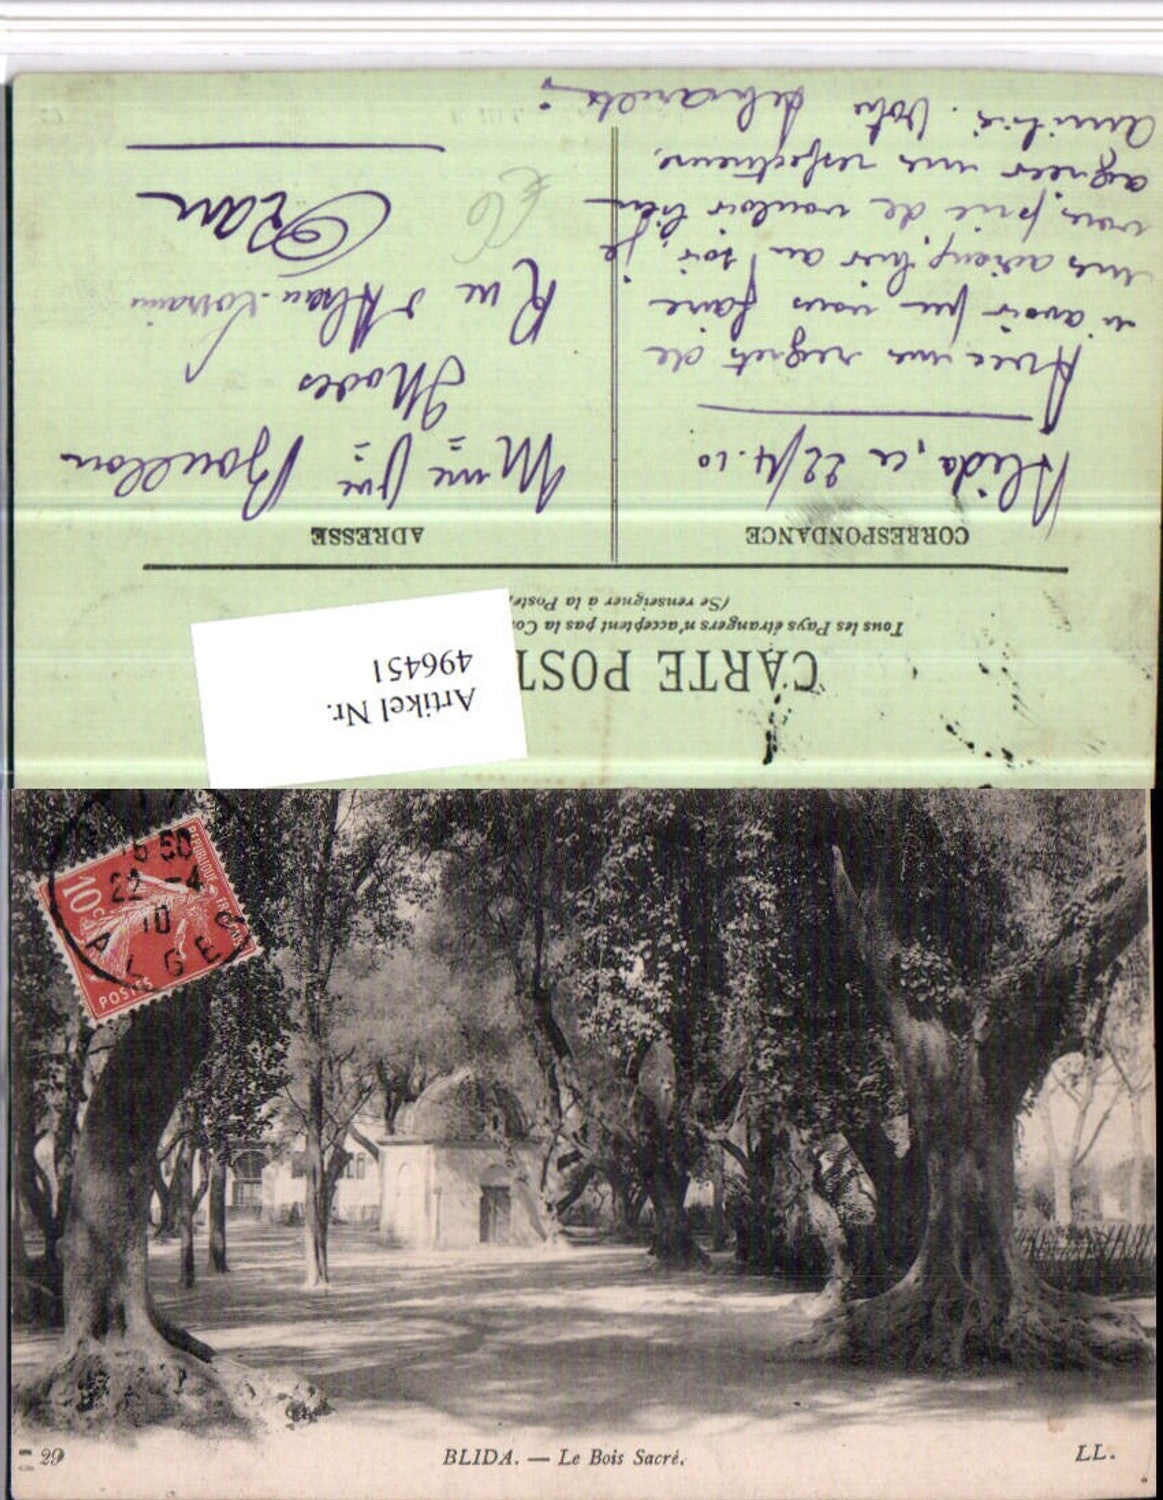 CARTE POST
Tous les Pays étrangers n'acceptent pas la Co
(Se renseigner à la Poste
CORRESPONDANCE
ADRESSE
Blida, ce 22/4.10
Avec mes regrets de
n'avoir pu vous faire
mes adieux, hier au soir, je
vous prie de vouloir bien
agréer mes respectueuses
amitiés. Votre
Mme Bouillon
Modes
Rue d'Alsace-Lorraine
Oran
Artikel Nr.
496451
15 50
22 -4
10
ALGER
REPUBLIQUE FRANÇAISE
10 c
POSTES
29
BLIDA. — Le Bois Sacré.
LL.